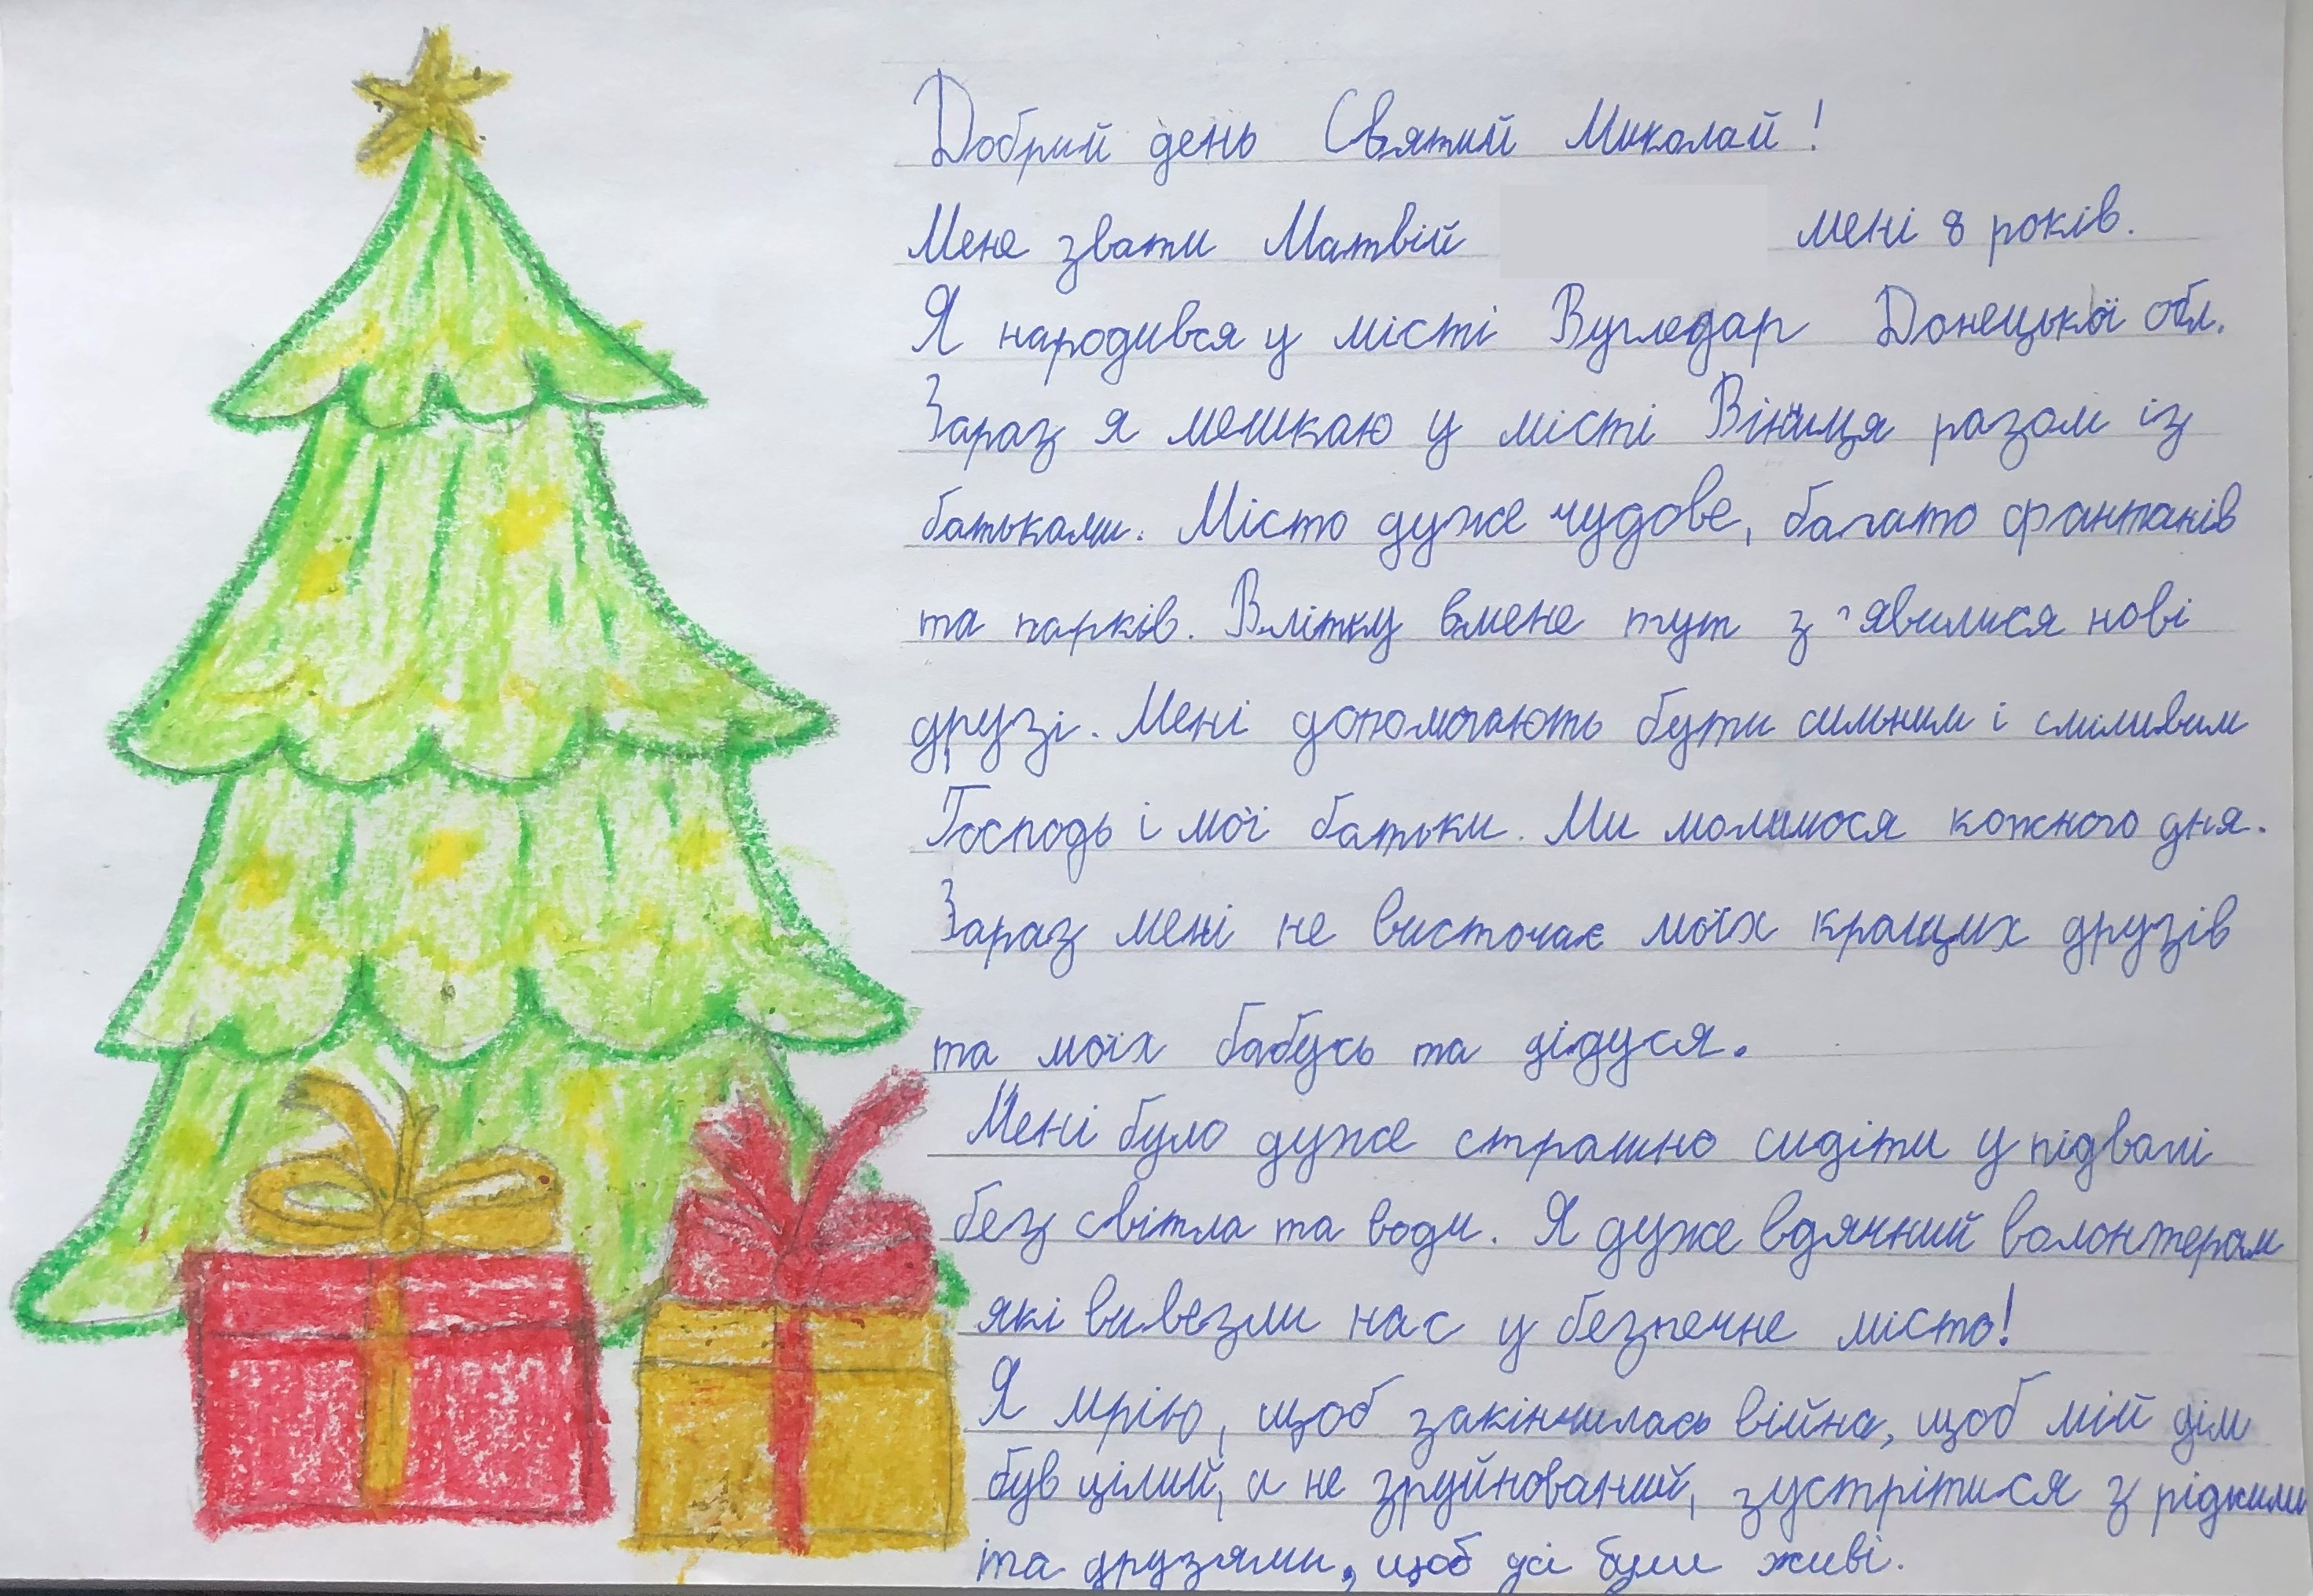 Добрий день Святий Миколай!
Мене звати Матвій мені 8 років.
Я народився у місті Вугледар Донецької обл.
Зараз я мешкаю у місті Вінниця разом із
батьками. Місто дуже чудове, багато фантанів
та парків. Влітку вмене тут з'явилися нові
друзі. Мені допомогають бути сильним і сміливим
Господь і мої батьки. Ми молимося кожного дня.
Зараз мені не висточає моїх кращих друзів
та моїх бабусь та дідуся.
Мені було дуже страшно сидіти у підвалі
без світла та води. Я дуже вдячний волонтерам
які вивезли нас у безпечне місто!
Я мрію, щоб закінчилась війна, щоб мій дім
був цілий, а не зруйнований, зустрітися з рідними
та друзями, щоб усі були живі.